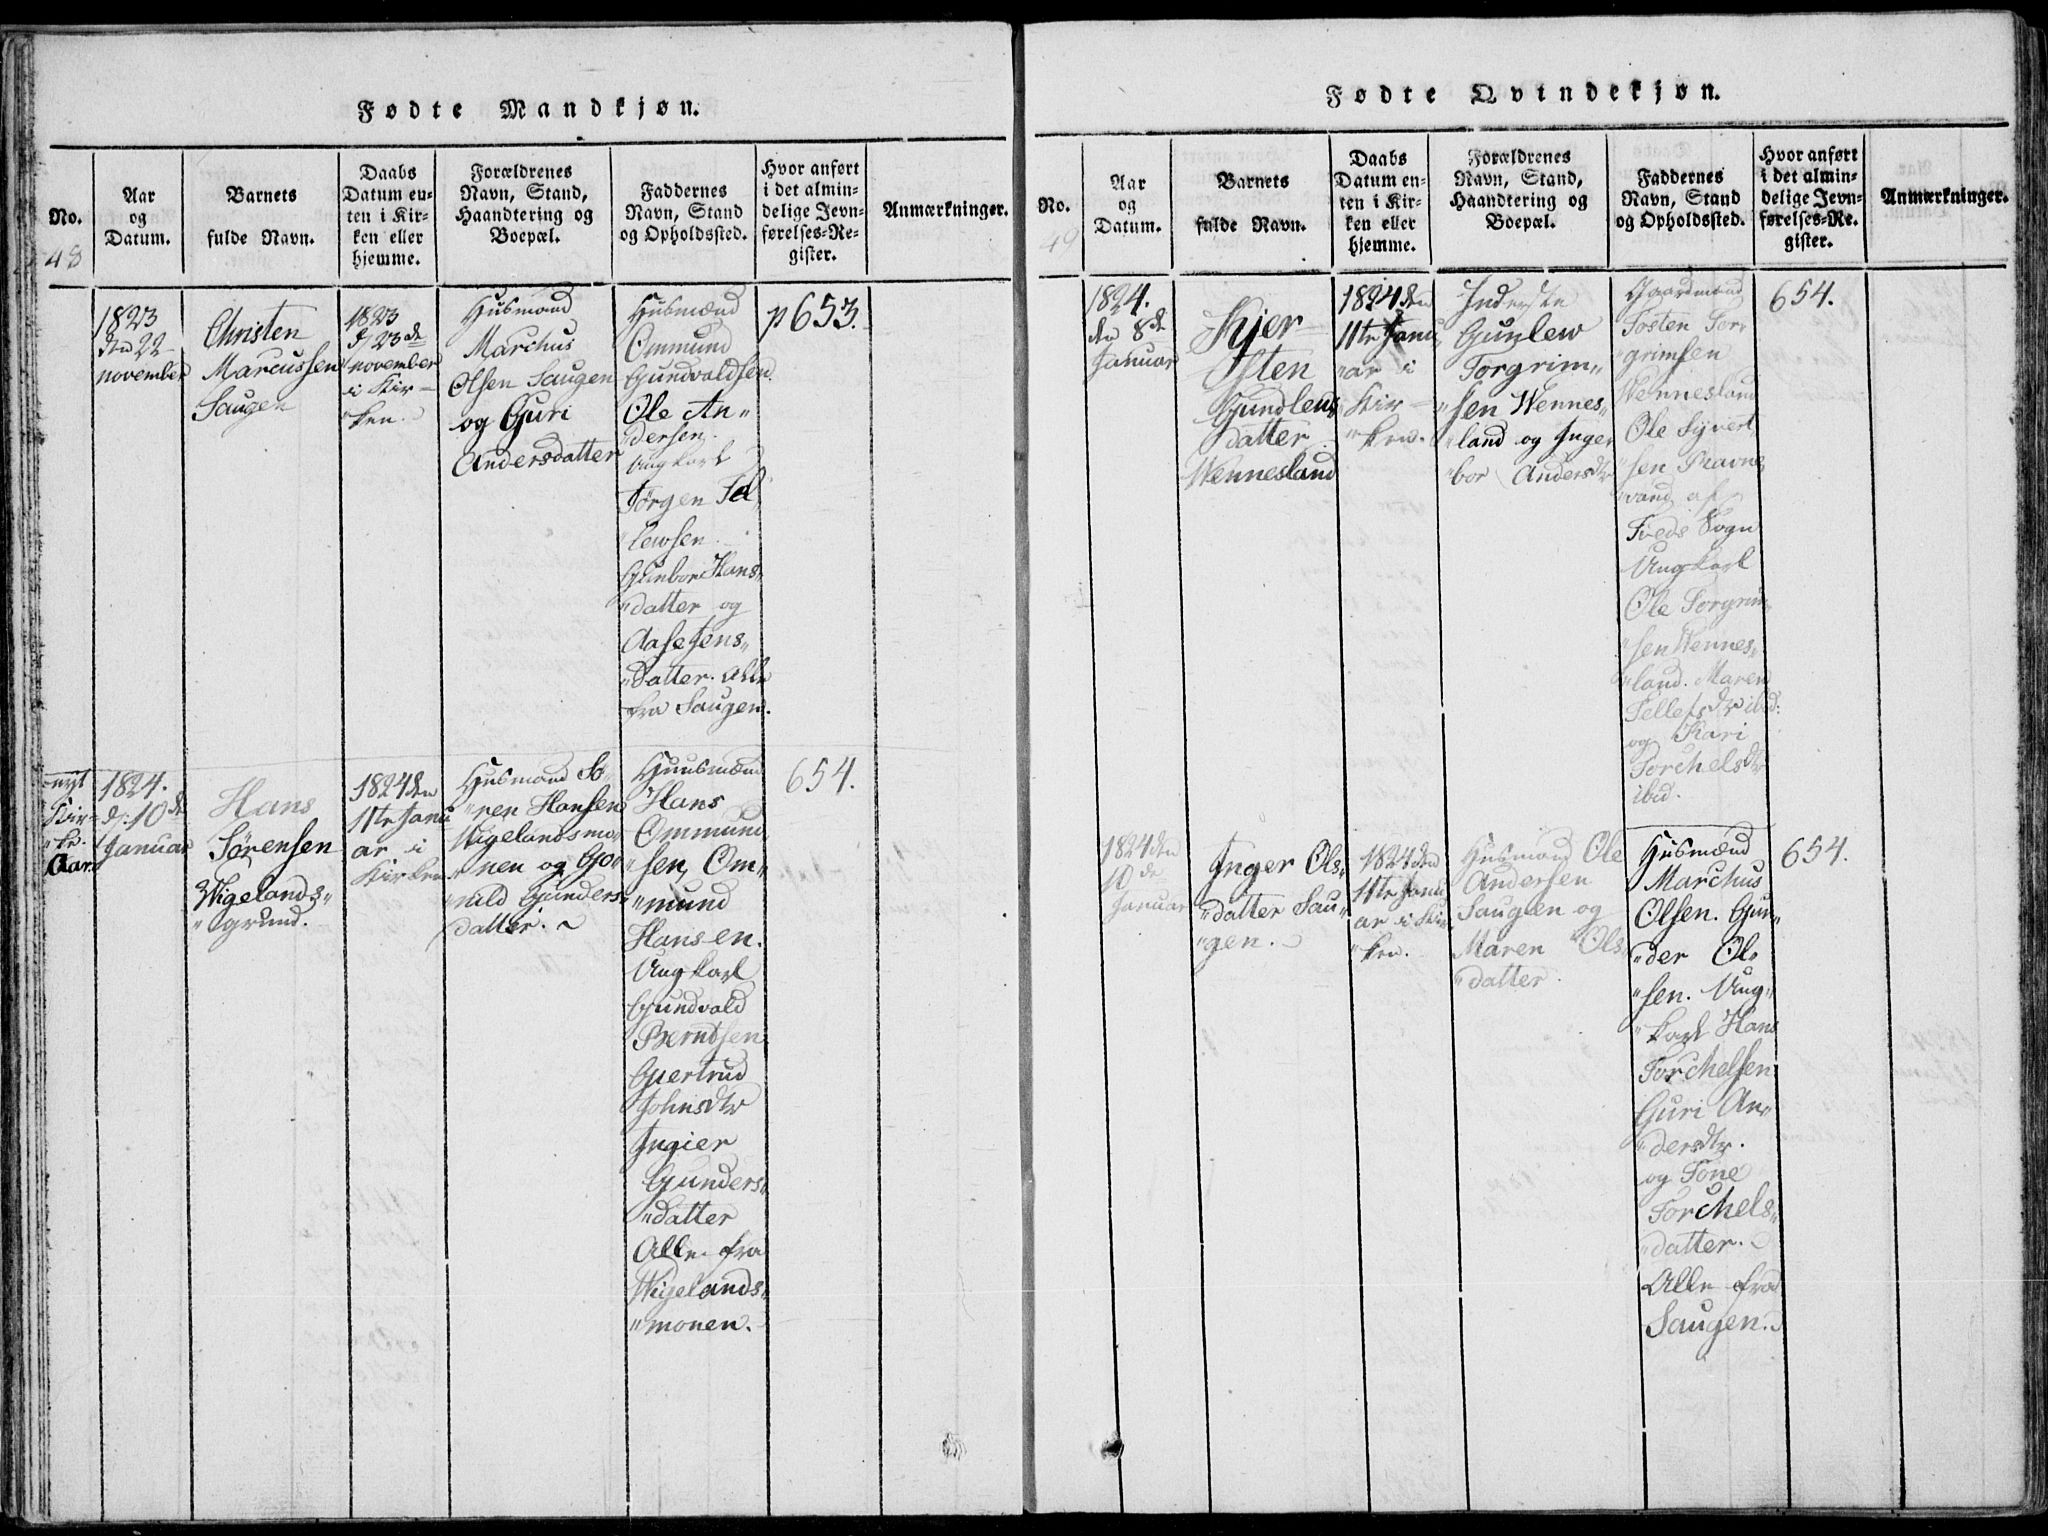 Fødte Mandkjøn.
No.
48
Aar
og
Datum.
Barnets
fulde Navn.
Daabs
Datum en-
ten i Kir-
ken eller
hjemme.
Forældrenes
Navn, Stand,
Haandtering og
Boepæl.
Faddernes
Navn, Stand
og Opholdssted.
Hvor anført
i det almin-
delige Jevn-
førelses-Re-
gister.
Anmærkninger.
1823
den 22
november
Christen
Marcussen
Saugen
1823
d 23de
november
i Kir-
"ken.
Husmand
Marchus
Olsen Saugen
og Guri
Andersdatter
Husmænd
Ommund
Gundvaldsen.
Ole An"
dersen.
Ungkarl
Jørgen Tel"
lewsen.
Gunbor Hans"
"datter og
Aase Jens"
"datter. Alle
fra Saugen.
p 653.
nyt
Kir=
"ke.
Aar.
1824.
d: 10de
Januar
Hans
Sørensen
Wigelands"
"grund.
1824 den
11te Janu
ar i
Kirken
Husmand Sø"
"ren Hansen
Wigelandsmo"
"nen og Gjo"
"nild Gunders
datter.
Huusmænd
Hans
Ommund"
"sen, Om"
"mund
Hansen.
Ungkarl
Gundvald
Berntsen
Gjertrud
Johnsdtr
Ingier
Gunders"
"datter
Alle fra
Wigelands"
"monen.
654.
Fødte Qvindekjøn.
No.
49
Aar
og
Datum.
Barnets
fulde Navn.
Daabs
Datum en-
ten i Kir-
ken eller
hjemme.
Forældrenes
Navn, Stand,
Haandtering og
Boepæl.
Faddernes
Navn, Stand
og Opholdssted.
Hvor anført
i det almin-
delige Jevn-
førelses-Re-
gister.
Anmærkninger.
1824.
den 8de
Januar
Kjer-
sten
Gundleus
datter
Wennesland
1824 den
11te Janu
"ar i
Kir-
"ken.
Inderste
Gunlew
Torgrim"
"sen Wennes"
"land og Inge"
"bor Andersdtr
Gaardmænd
Tosten Tor"
"grimsen
Wennesland
Ole Syvert"
"sen Ravne"
vand af
Tveds Sogn
Ungkarl
Ole Torgrim"
"sen Wennes"
"land. Maren
Tellefsdtr ibid:
og Kari
Torchelsdtr
ibid.
654.
1824 den
10de
Januar
Inger Ols"
"datter Sau"
"gen.
1824 den
11te Janu
ar i Kir
"ken.
Husmand Ole
Andersen
Saugen og
Maren Ols
"datter.
Husmænd
Marchus
Olsen. Gun"
"der Ol"
"sen. Ung"
"karl Hans
Torchelsen
Guri An"
"dersdtr.
og Tone
Torchels"
"datter.
Alle fra
Saugen.
654.